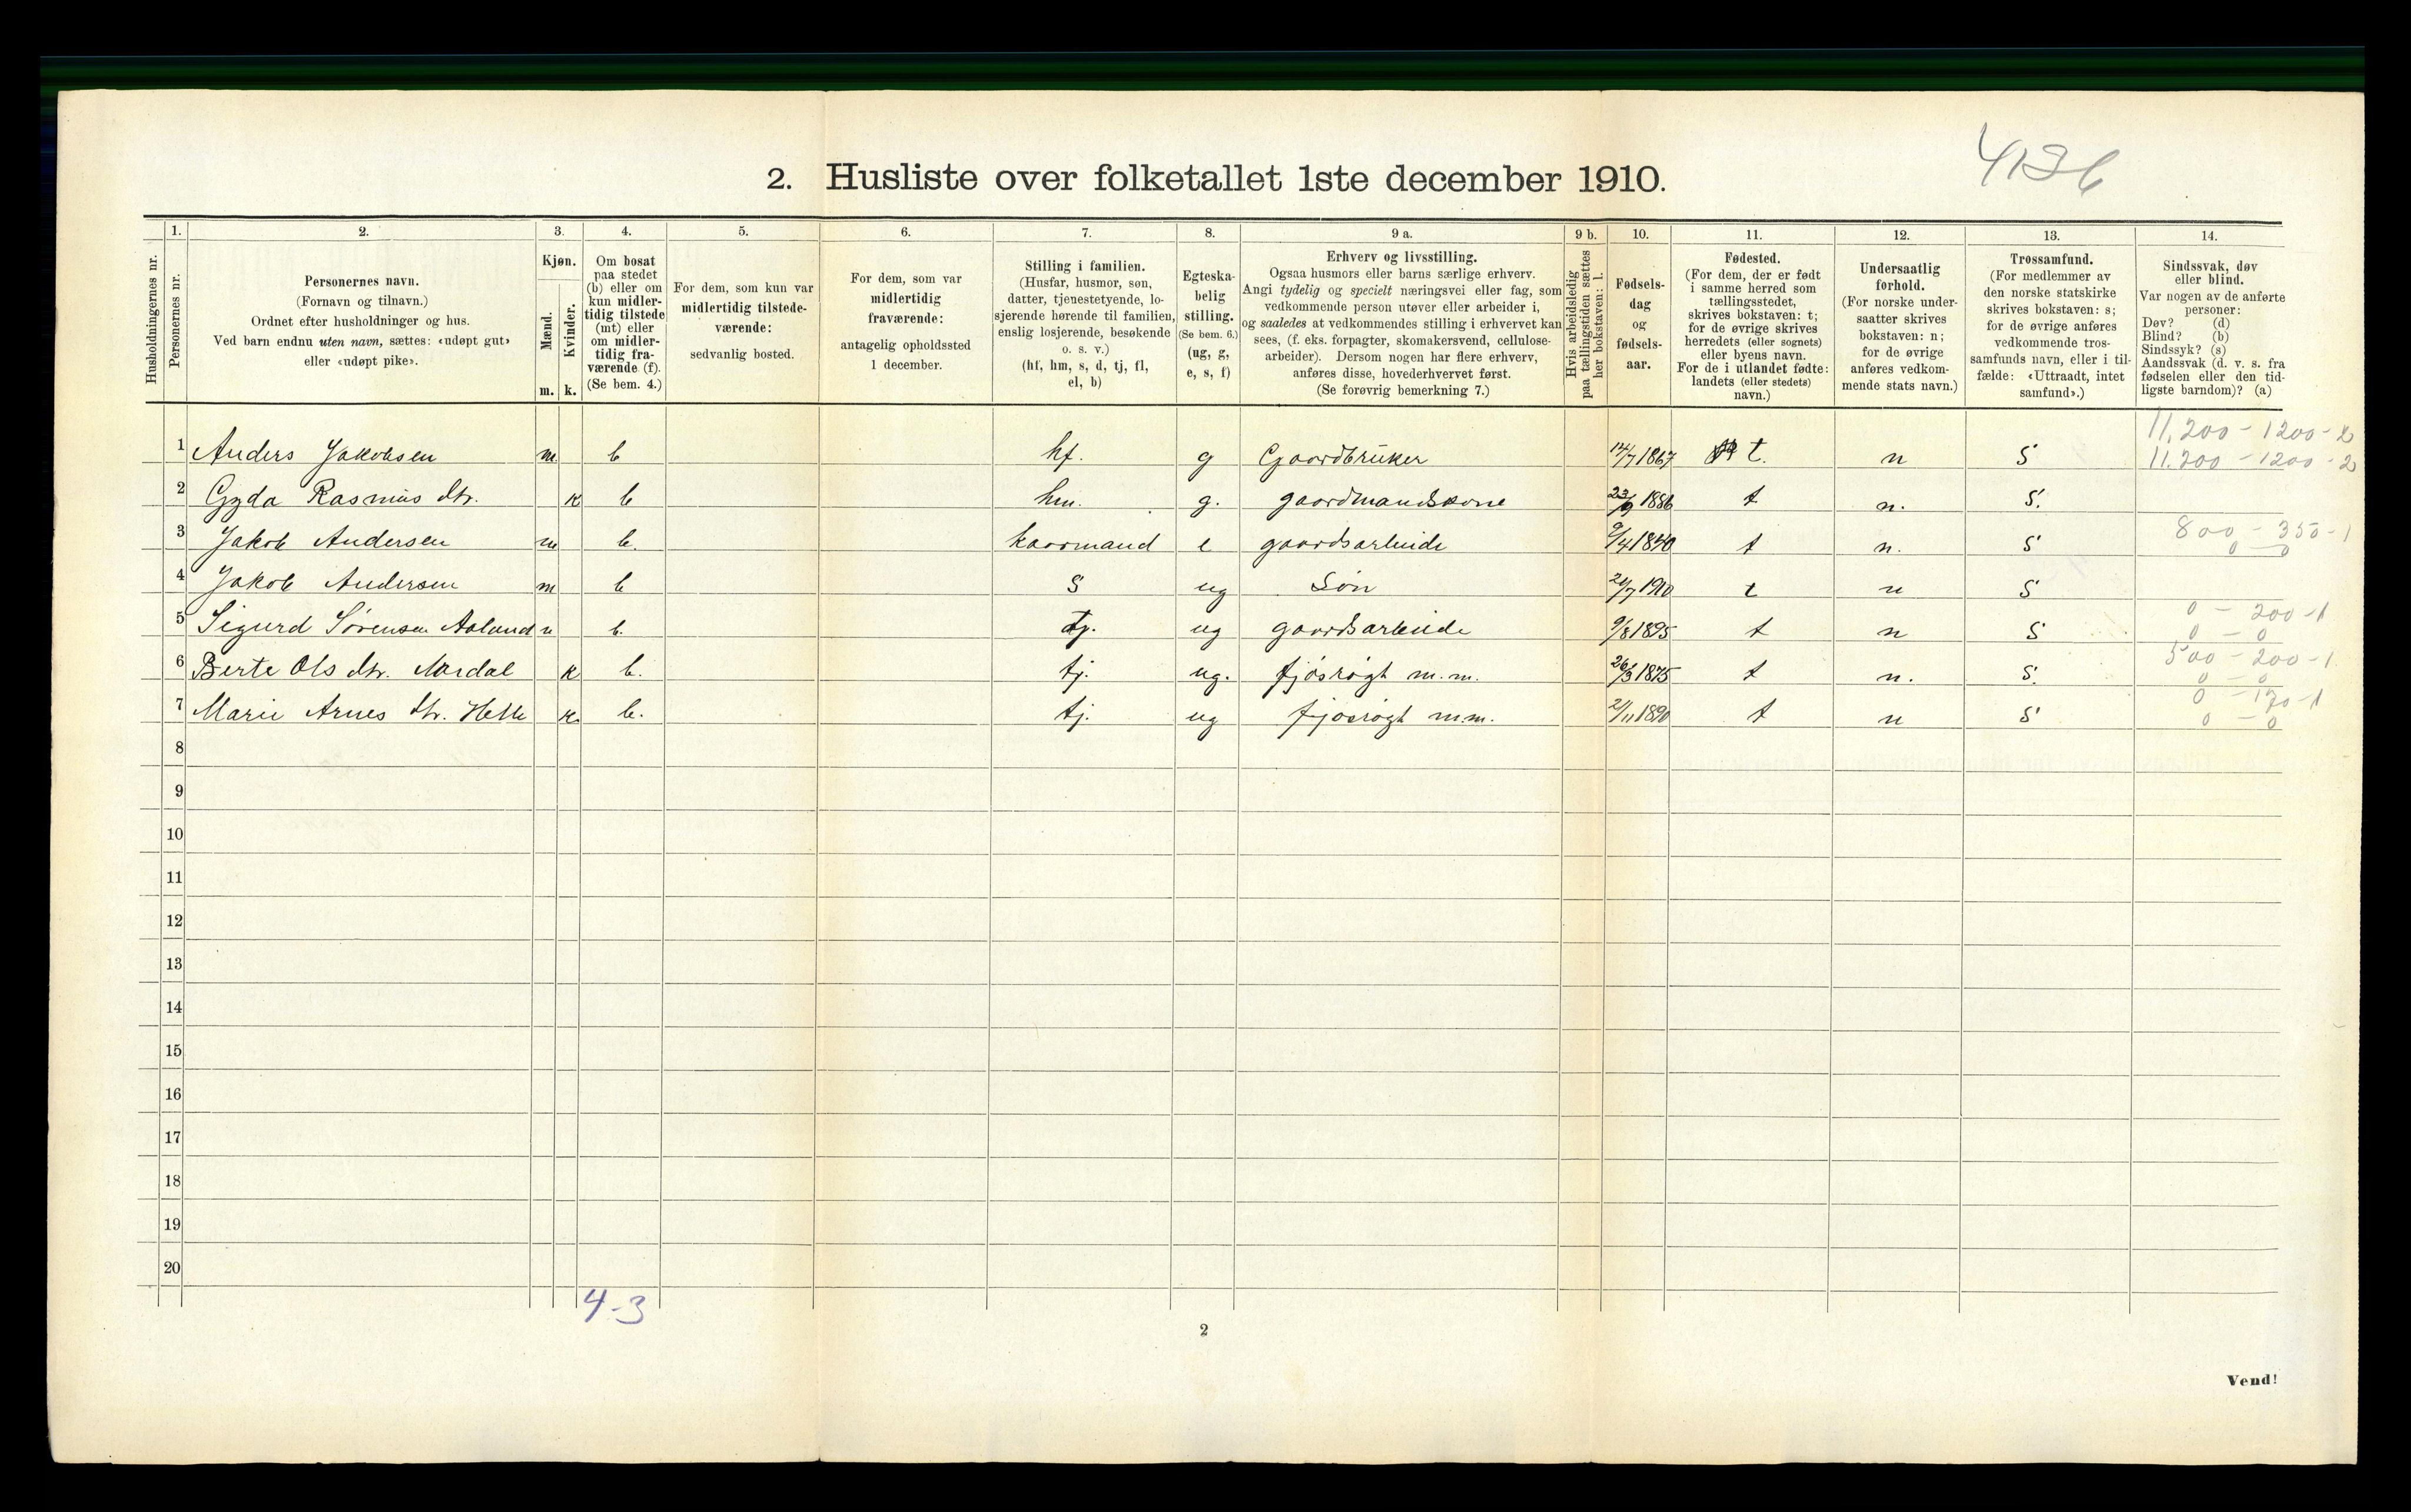 4136
2. Husliste over folketallet 1ste december 1910.
Husholdningernes nr.
1.
Personernes nr.
2.
Personernes navn.
(Fornavn og tilnavn.)
Ordnet efter husholdninger og hus.
Ved barn endnu uten navn, sættes: «udøpt gut»
eller «udøpt pike».
3.
Kjøn.
Mænd.
m.
Kvinder.
k.
4.
Om bosat
paa stedet
(b) eller om
kun midler-
tidig tilstede
(mt) eller
om midler-
tidig fra-
værende (f).
(Se bem. 4.)
5.
For dem, som kun var
midlertidig tilstede-
værende:
sedvanlig bosted.
6.
For dem, som var
midlertidig
fraværende:
antagelig opholdssted
1 december.
7.
Stilling i familien.
(Husfar, husmor, søn,
datter, tjenestetyende, lo-
sjerende hørende til familien,
enslig losjerende, besøkende
o. s. v.)
(hf, hm, s, d, tj, fl,
el, b)
8.
Egteska-
belig
stilling.
(Se bem. 6.)
(ug, g,
e, s, f)
9 a.
Erhverv og livsstilling.
Ogsaa husmors eller barns særlige erhverv.
Angi tydelig og specielt næringsvei eller fag, som
vedkommende person utøver eller arbeider i,
og saaledes at vedkommendes stilling i erhvervet kan
sees, (f. eks. forpagter, skomakersvend, cellulose-
arbeider). Dersom nogen har flere erhverv,
anføres disse, hovederhvervet først.
(Se forøvrig bemerkning 7.)
9 b.
Hvis arbeidsledig
paa tællingstiden sættes
her bokstaven: l.
10.
Fødsels-
dag
og
fødsels-
aar.
11.
Fødested.
(For dem, der er født
i samme herred som
tællingsstedet,
skrives bokstaven: t;
for de øvrige skrives
herredets (eller sognets)
eller byens navn.
For de i utlandet fødte:
landets (eller stedets)
navn.)
12.
Undersaatlig
forhold.
(For norske under-
saatter skrives
bokstaven: n;
for de øvrige
anføres vedkom-
mende stats navn.)
13.
Trossamfund.
(For medlemmer av
den norske statskirke
skrives bokstaven: s;
for de øvrige anføres
vedkommende tros-
samfunds navn, eller i til-
fælde: «Uttraadt, intet
samfund».)
14.
Sindssvak, døv
eller blind.
Var nogen av de anførte
personer:
Døv? (d)
Blind? (b)
Sindssyk? (s)
Aandssvak (d. v. s. fra
fødselen eller den tid-
ligste barndom)? (a)
11.200 - 1200 - 2
1 Anders Jakobsen m b hf. g Gaardbruker 14/7 1867 t. n S 11.200 - 1200 - 2
2 Gyda Rasmus dtr. k b hm. g. gaardmandskone 1886 t n. S.
3 Jakob Andersen m b. kaarmand e gaardsarbeide 9/4 1840 t n. S 800 - 350 - 1
0 - 0
4 Jakob Andersen m b S ug Søn 1910 t n S
5 Sigurd Sørensen Aalund m b. tj. ug gaardsarbeide 9/8 1895 t n S 0 - 200 - 1
0 - 0
6 Berte Ols dtr. Aardal k b. tj. ug. fjøsrøgt m.m. 26/3 1875 t n. S. 500 - 200 - 1
0 - 0
7 Marie Arnes dtr. Helle k b. tj. ug fjøsrøgt m.m. 2/11 1890 t n S 0 - 170 - 1
0 - 0
8
9
10
11
12
13
14
15
16
17
18
19
20
4-3
2
Vend!